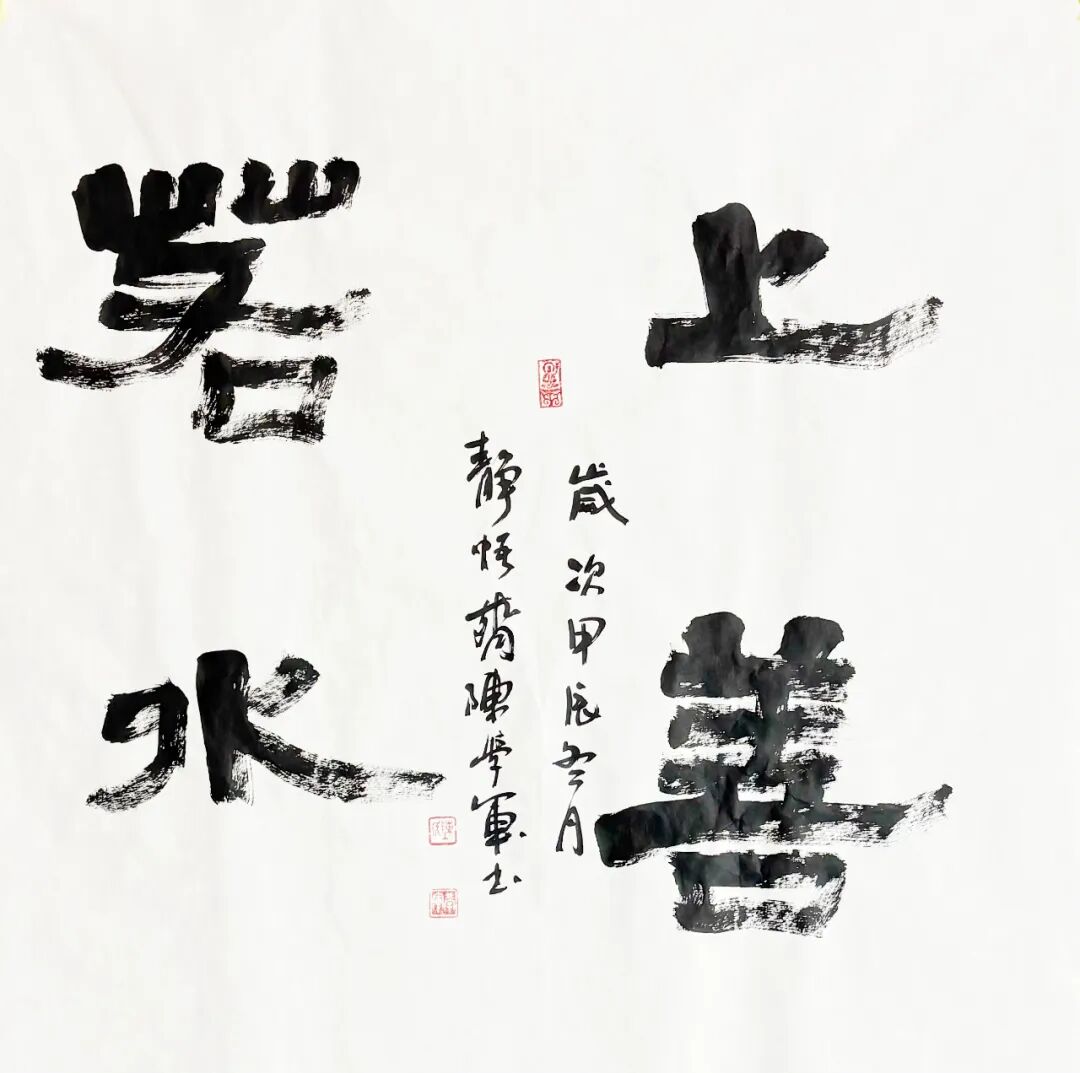 上善
若水
歲次甲辰冬月
靜悟齋陳學軍書